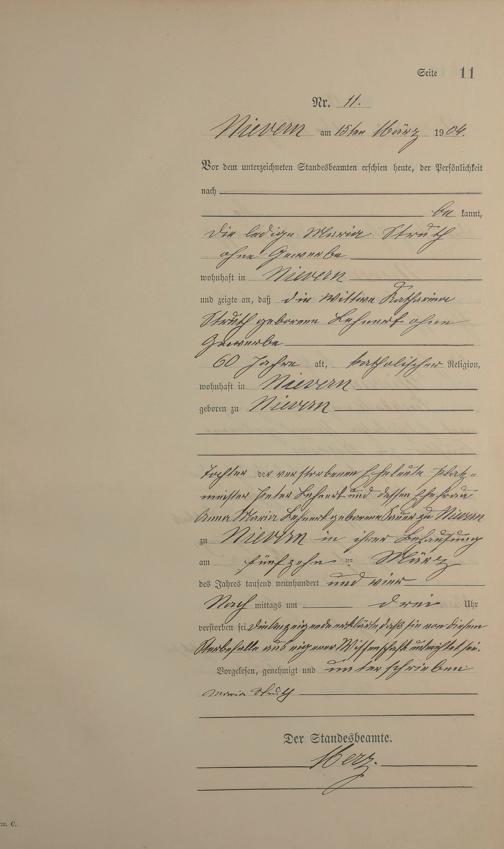 Seite 11
Nr. 11.
Nievern am 15ten März 1904.
Vor dem unterzeichneten Standesbeamten erschien heute, der Persönlichkeit
nach
be kannt,
die ledige Maria Struth
ohne Gewerbe
wohnhaft in Nievern
und zeigte an, daß die Wittwe Katharina
Struth geborene Lehnert ohne
Gewerbe
60 Jahre alt, katholischer Religion,
wohnhaft in Nievern
geboren zu Nievern
Tochter der verstorbenen Eheleute Platz-
meister Peter Lehnert und dessen Ehefrau
Anna Maria Lehnert geborene zu Nievern
zu Nievern in ihrer Behausung
am fünfzehn ten März
des Jahres tausend neunhundert und vier
Nach mittags um drei Uhr
verstorben sei, die Anzeigende erklärte, daß sie von diesem
Sterbefalle aus eigener Wissenschaft unterrichtet sei.
Vorgelesen, genehmigt und unterschrieben
Maria Struth
Der Standesbeamte.
Merz.
C.